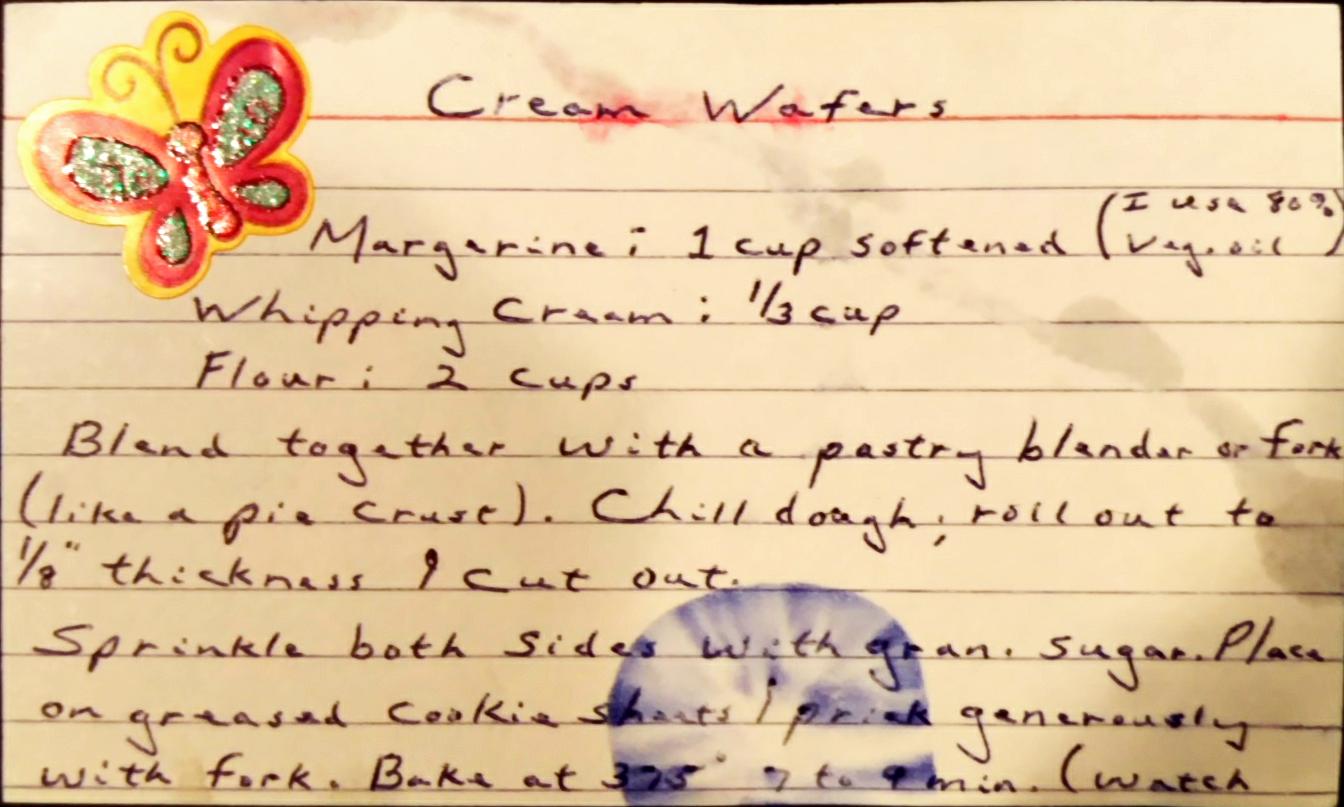 Cream Wafers
Margarine: 1 cup softened (I use 80%
Veg. oil)
Whipping Cream: 1/3 cup
Flour: 2 cups
Blend together with a pastry blender or fork
(like a pie crust). Chill dough; roll out to
1/8" thickness & cut out.
Sprinkle both sides with gran. sugar. Place
on greased cookie sheets & prick generously
with fork. Bake at 375° 7 to 9 min. (watch